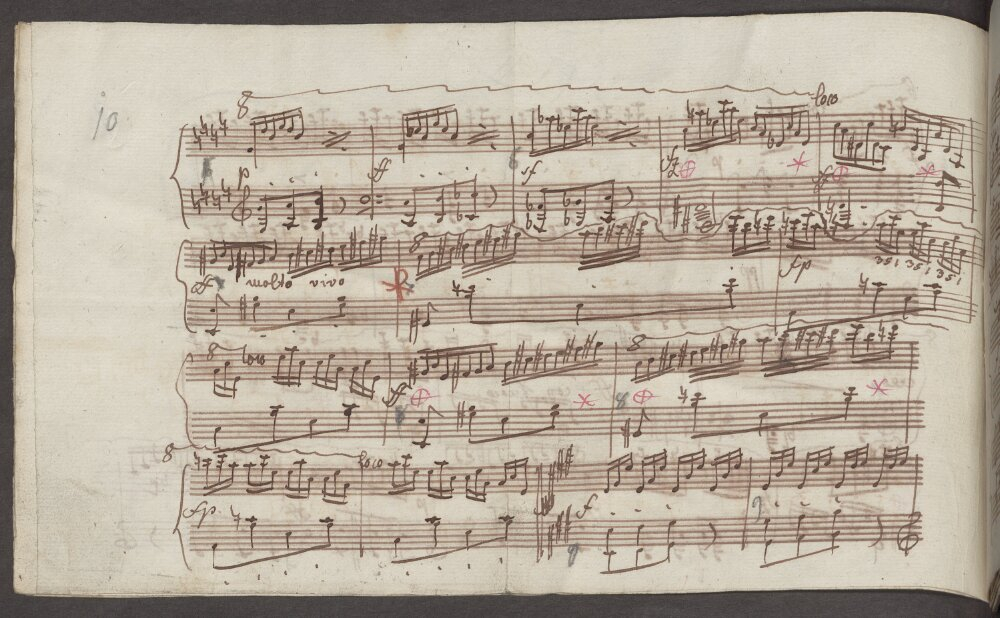 10
8 loco
p ff sf fz f
ff molto vivo 8 fp 351 351 351
8 loco ff 8
8 loco
fp f